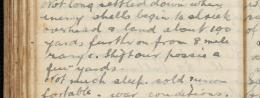 Not long settled down when
enemy shells begin to shriek
overhead & land about 100
yards further on from 8 mile
range. Shift our possie a
few yards.
Not much sleep. cold & uncom
fortable. war conditions.